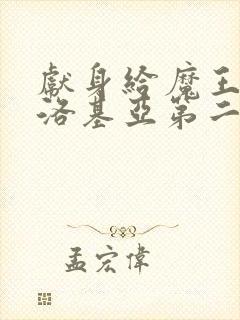 獻身給魔王伊
洛基亞第二
孟宏偉